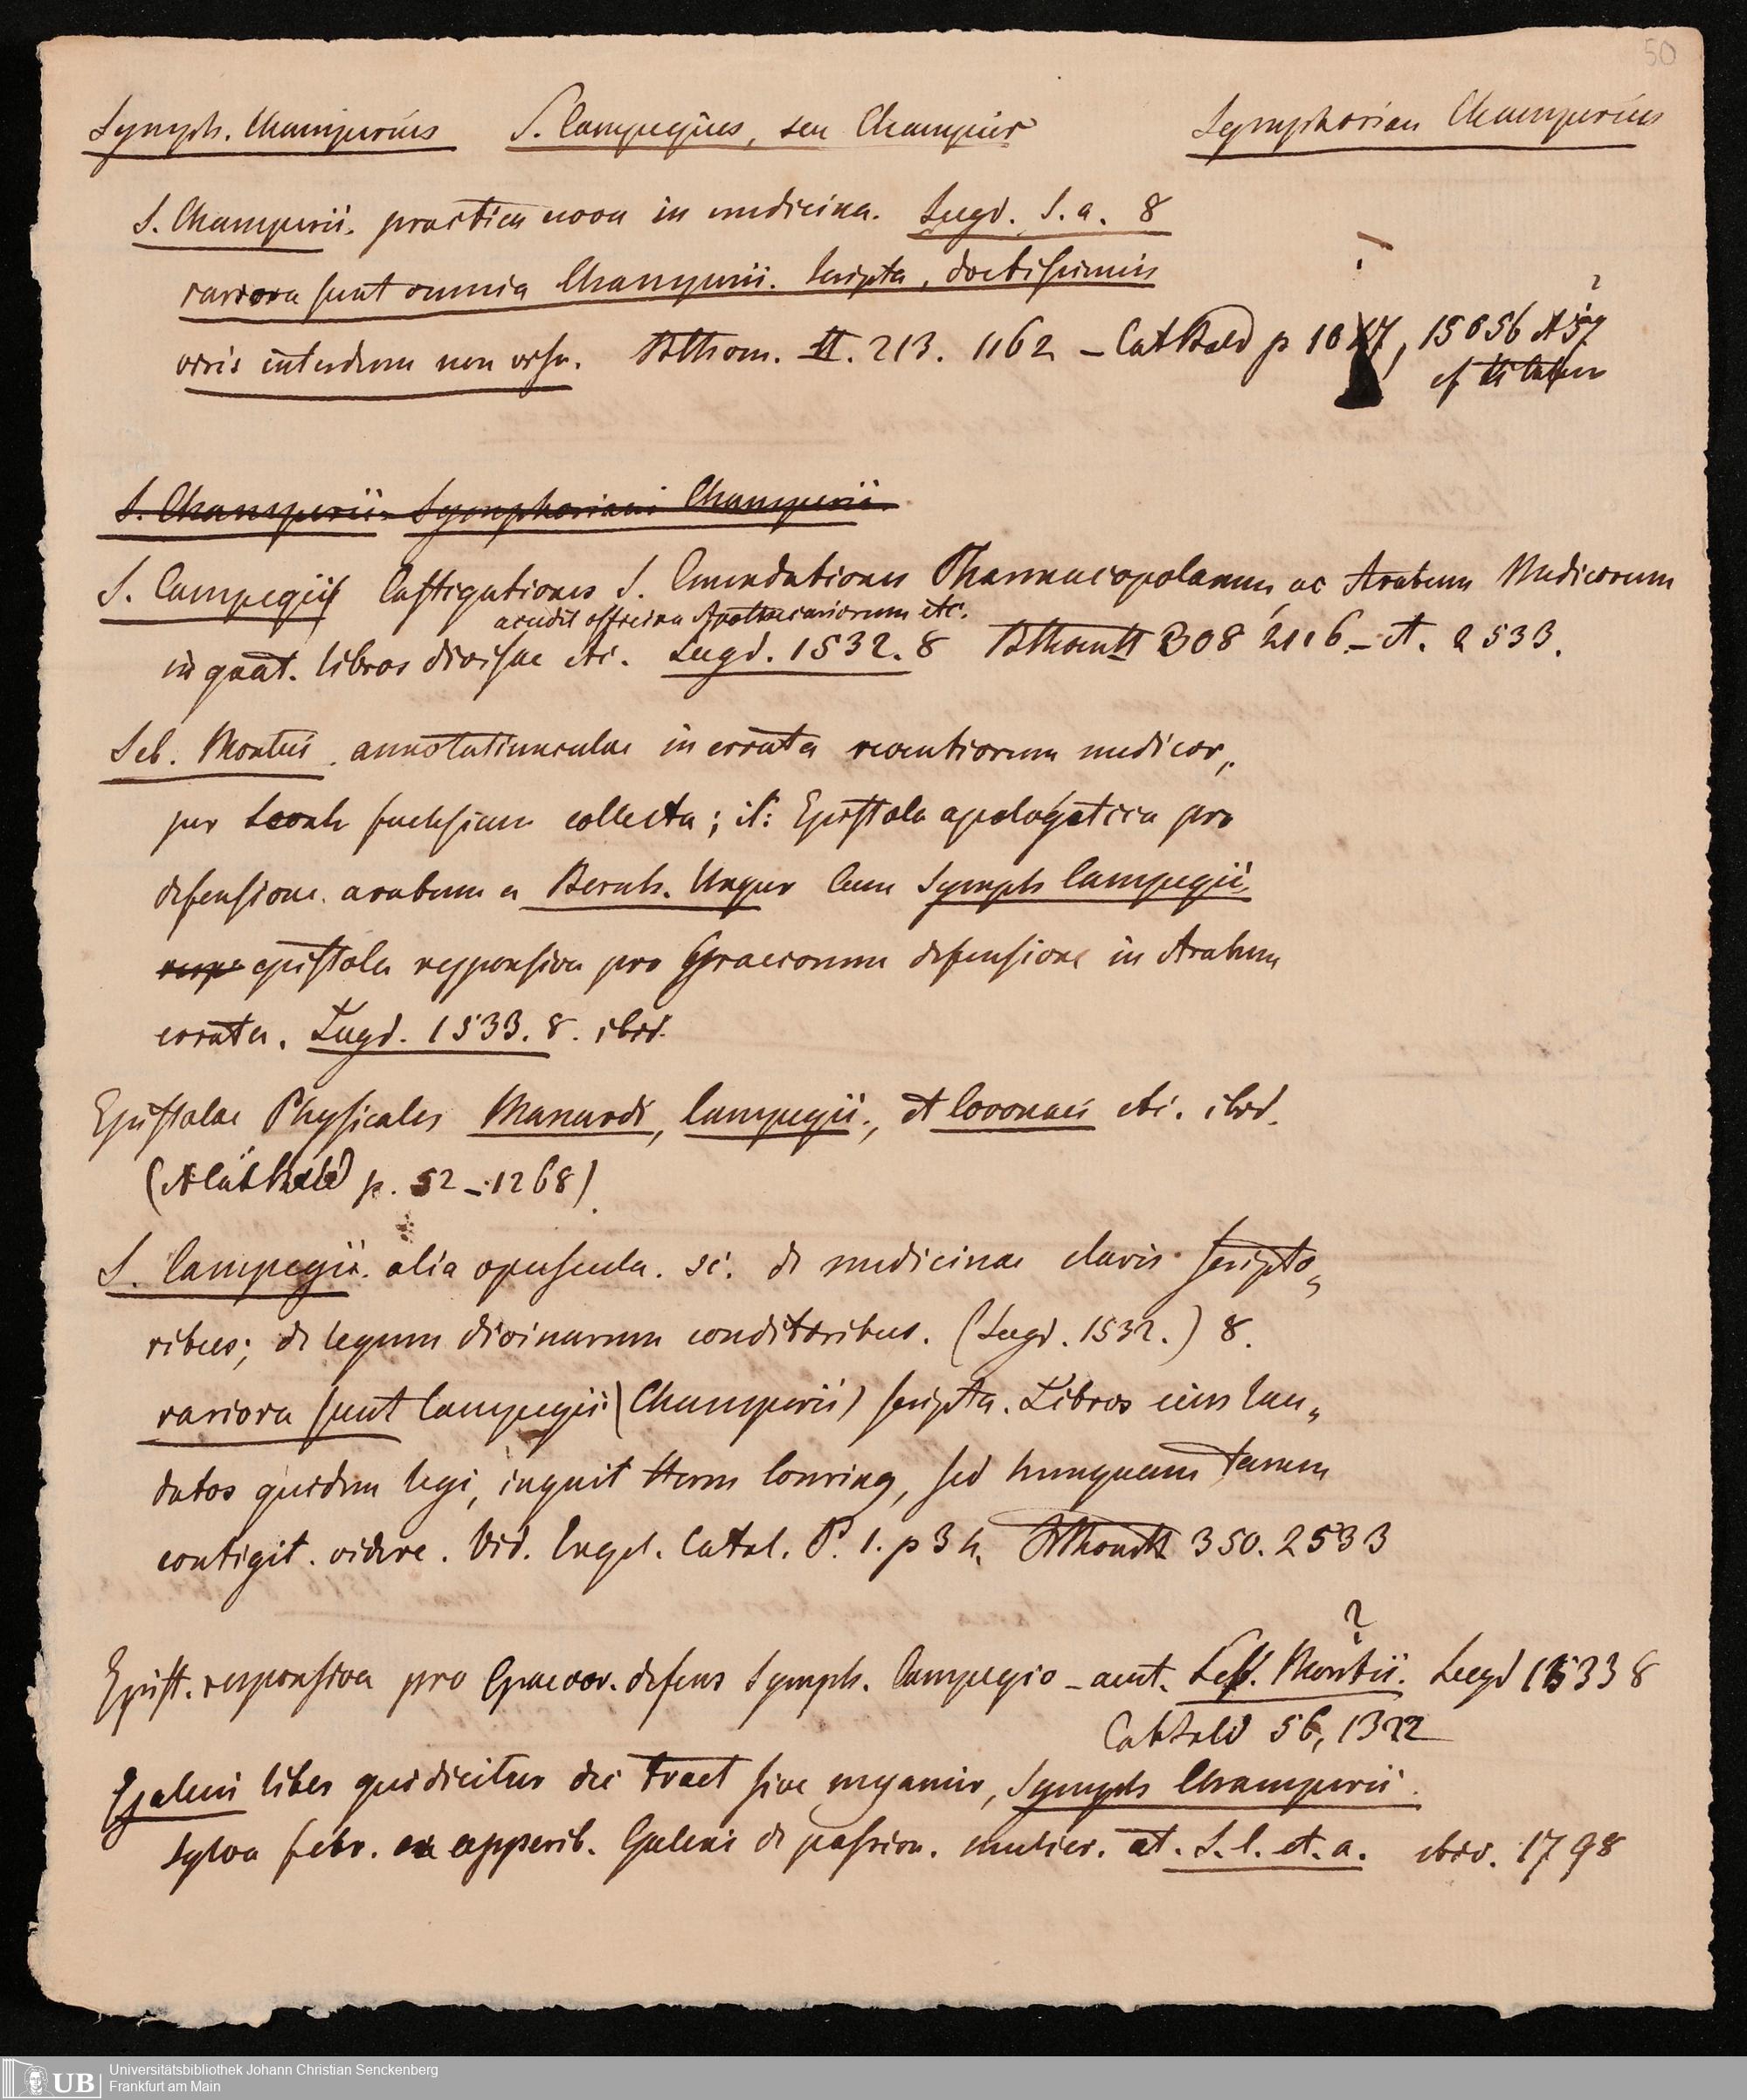 50
Symph. Champerius S. Campegius, seu Champier Symphorian Champerius
S. Champerii. practica nova in medicina. Lugd. S. a. 8
rariora sunt omnia Champerii. scripta, doctissimis
viris interdum non visa. II. 213. 1162 – Cat Bald p 1047, 15056
S. Champerii. Symphoriani Champerii
S. Campegii Castigationes S. Emendationes Pharmacopolarum, ac Arabum Medicorum
accedit officina Apothecariorum etc.
in quat. libros divisae etc. Lugd. 1532. 8 308 2116 – et. 2533.
Seb. Montui. annotatiunculae in errata recentiorum medicor„
per Leonh fuchsium collecta; it: Epistola apologetica pro
defensione. arabum a Bernh. Unger Cum Symph Campegii
resp epistola responsiva pro Graecorum defensione in Arabum
errata. Lugd. 1533. 8. ibid.
Epistolae Physicales Manardi, Campegii., et Coronaei etc. ibid.
p. 52 – 1268)
S. Campegii. alia opuscula. sc. de medicinae claris scripto„
ribus; de legum divinarum conditoribus. (Lugd. 1532.) 8.
rariora sunt Campegii (Champerii) scripta. Libros eius lau„
datos quidem legi, inquit Herm Conring, sed nunquam tamen
contigit. videre. Vid. Engel. Catal. P. 1. p 34. 350. 2533
?
Epist. responsiva pro Graecor. defens Symph. Campegio – aut. Seb. Montii. Lugd 1533 8
Cat Bald 56, 1322
Galeni liber qui dicitur dei tract sive megamir, Symph Champerii.
Sylva febr. ex experib. Galeni de passion. mulier. at. S. l. et. a. ibid. 1798
UB Universitätsbibliothek Johann Christian Senckenberg
Frankfurt am Main